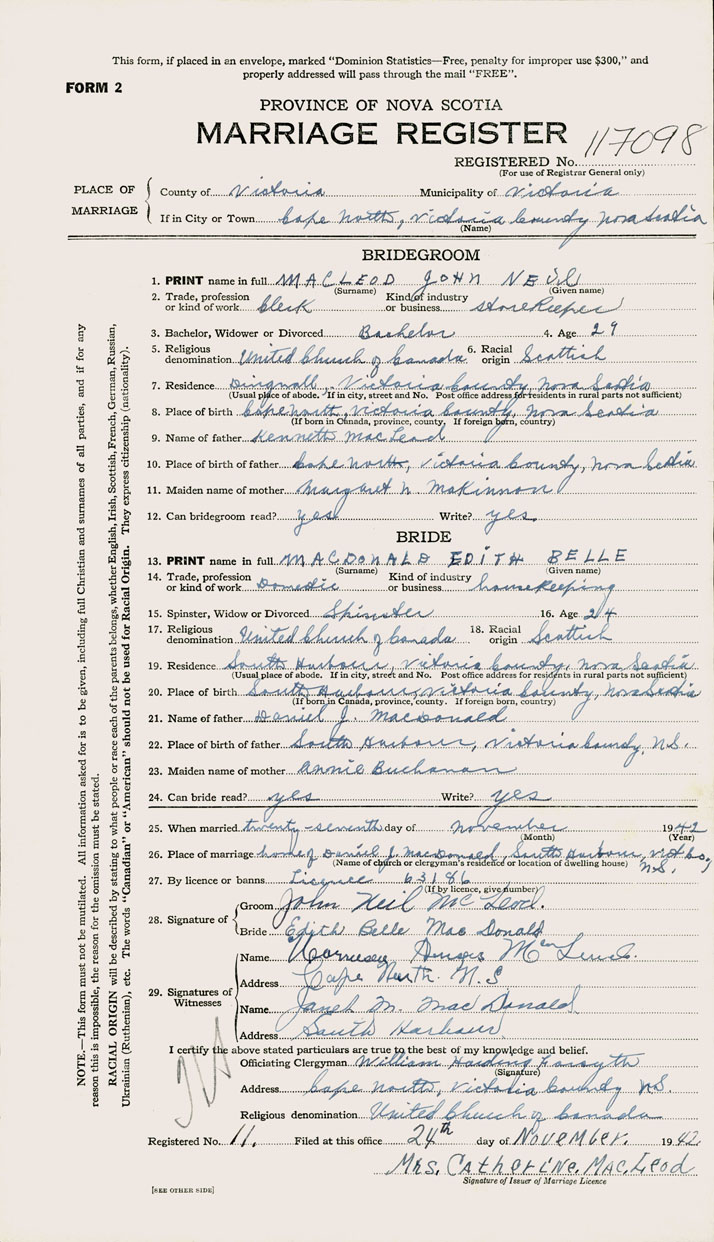 This form, if placed in an envelope, marked "Dominion Statistics—Free, penalty for improper use $300," and
properly addressed will pass through the mail "FREE".
FORM 2
PROVINCE OF NOVA SCOTIA
MARRIAGE REGISTER
117098
REGISTERED No.
(For use of Registrar General only)
PLACE OF MARRIAGE
County of Victoria Municipality of Victoria
If in City or Town Cape North, Victoria County Nova Scotia
(Name)
BRIDEGROOM
1. PRINT name in full MACLEOD JOHN NEIL
(Surname) (Given name)
2. Trade, profession or kind of work Clerk Kind of industry or business Storekeeper
3. Bachelor, Widower or Divorced Bachelor 4. Age 29
5. Religious denomination United Church of Canada 6. Racial origin Scottish
7. Residence Dingwall, Victoria County, Nova Scotia
(Usual place of abode. If in city, street and No. Post office address for residents in rural parts not sufficient)
8. Place of birth Cape North, Victoria County, Nova Scotia
(If born in Canada, province, county. If foreign born, country)
9. Name of father Kenneth MacLeod
10. Place of birth of father Cape North, Victoria County, Nova Scotia
11. Maiden name of mother Margaret N. McKinnon
12. Can bridegroom read? yes Write? yes
BRIDE
13. PRINT name in full MACDONALD EDITH BELLE
(Surname) (Given name)
14. Trade, profession or kind of work Domestic Kind of industry or business housekeeping
15. Spinster, Widow or Divorced Spinster 16. Age 24
17. Religious denomination United Church of Canada 18. Racial origin Scottish
19. Residence South Harbour, Victoria County, Nova Scotia
(Usual place of abode. If in city, street and No. Post office address for residents in rural parts not sufficient)
20. Place of birth South Harbour, Victoria County, Nova Scotia
(If born in Canada, province, county. If foreign born, country)
21. Name of father Daniel J. MacDonald
22. Place of birth of father South Harbour, Victoria County, N.S.
23. Maiden name of mother Annie Buchanan
24. Can bride read? yes Write? yes
25. When married twenty-seventh day of November 1942
(Month) (Year)
26. Place of marriage home of Daniel J. MacDonald, South Harbour, Vict. Co., N.S.
(Name of church or clergyman's residence or location of dwelling house)
27. By licence or banns Licence 63186
(If by licence, give number)
28. Signature of Groom John Neil McLeod.
Bride Edith Belle MacDonald
29. Signatures of Witnesses
Name Angus
Address Cape North. N.S
Name M. MacDonald
Address South Harbour
I certify the above stated particulars are true to the best of my knowledge and belief.
Officiating Clergyman William Harding Forsyth
(Signature)
Address Cape North, Victoria County N.S.
Religious denomination United Church of Canada
Registered No. 11. Filed at this office 24th day of November. 1942
Mrs. Catherine MacLeod
Signature of Issuer of Marriage Licence
[SEE OTHER SIDE]
NOTE.—This form must not be mutilated. All information asked for is to be given, including full Christian and surnames of all parties, and if for any
reason this is impossible, the reason for the omission must be stated.
RACIAL ORIGIN will be described by stating to what people or race each of the parents belongs, whether English, Irish, Scottish, French, German, Russian,
Ukrainian (Ruthenian), etc. The words "Canadian" or "American" should not be used for Racial Origin. They express citizenship (nationality).